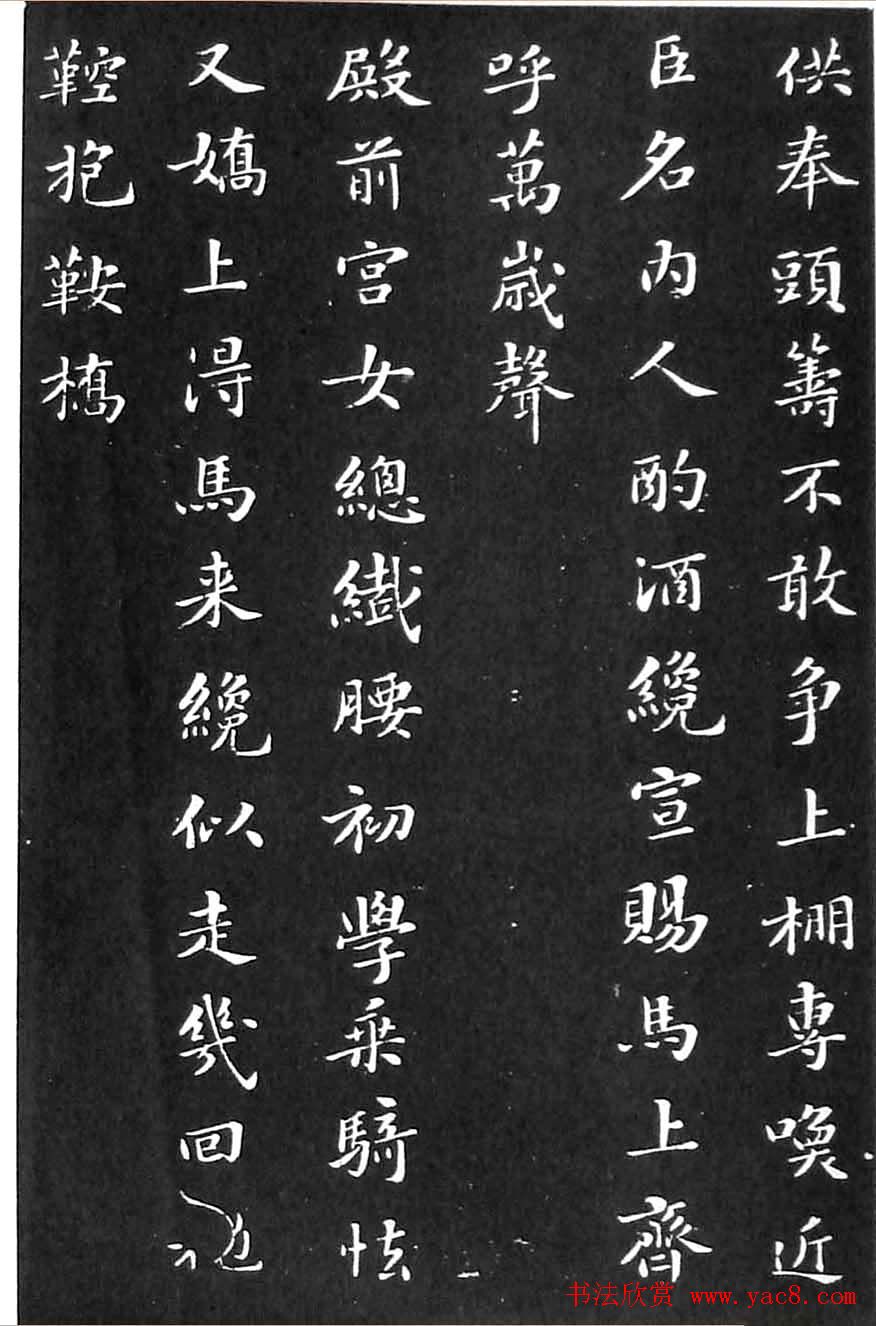 供奉頭籌不敢争上棚専喚近
臣名内人酌酒纔宣賜馬上齊
呼萬歳聲
殿前宫女總纎腰初學乗騎怯
又嬌上得馬来纔似走幾回
鞚抱鞍橋
书法欣赏 www.yac8.com